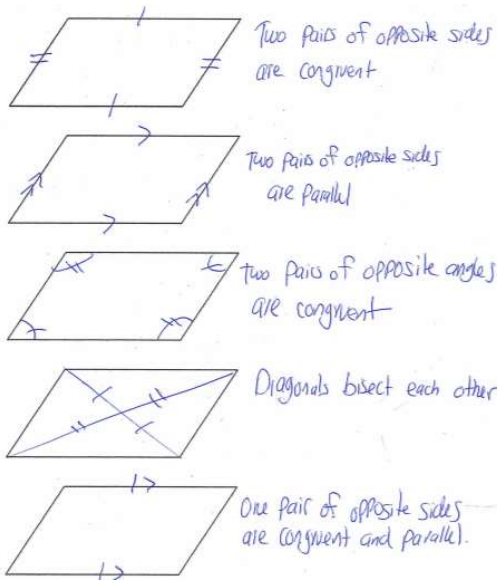 Two Pairs of opposite sides
are congruent
Two Pairs of opposite sides
are Parallel
Two Pairs of opposite angles
are congruent
Diagonals bisect each other
One Pair of opposite sides
are congruent and parallel.